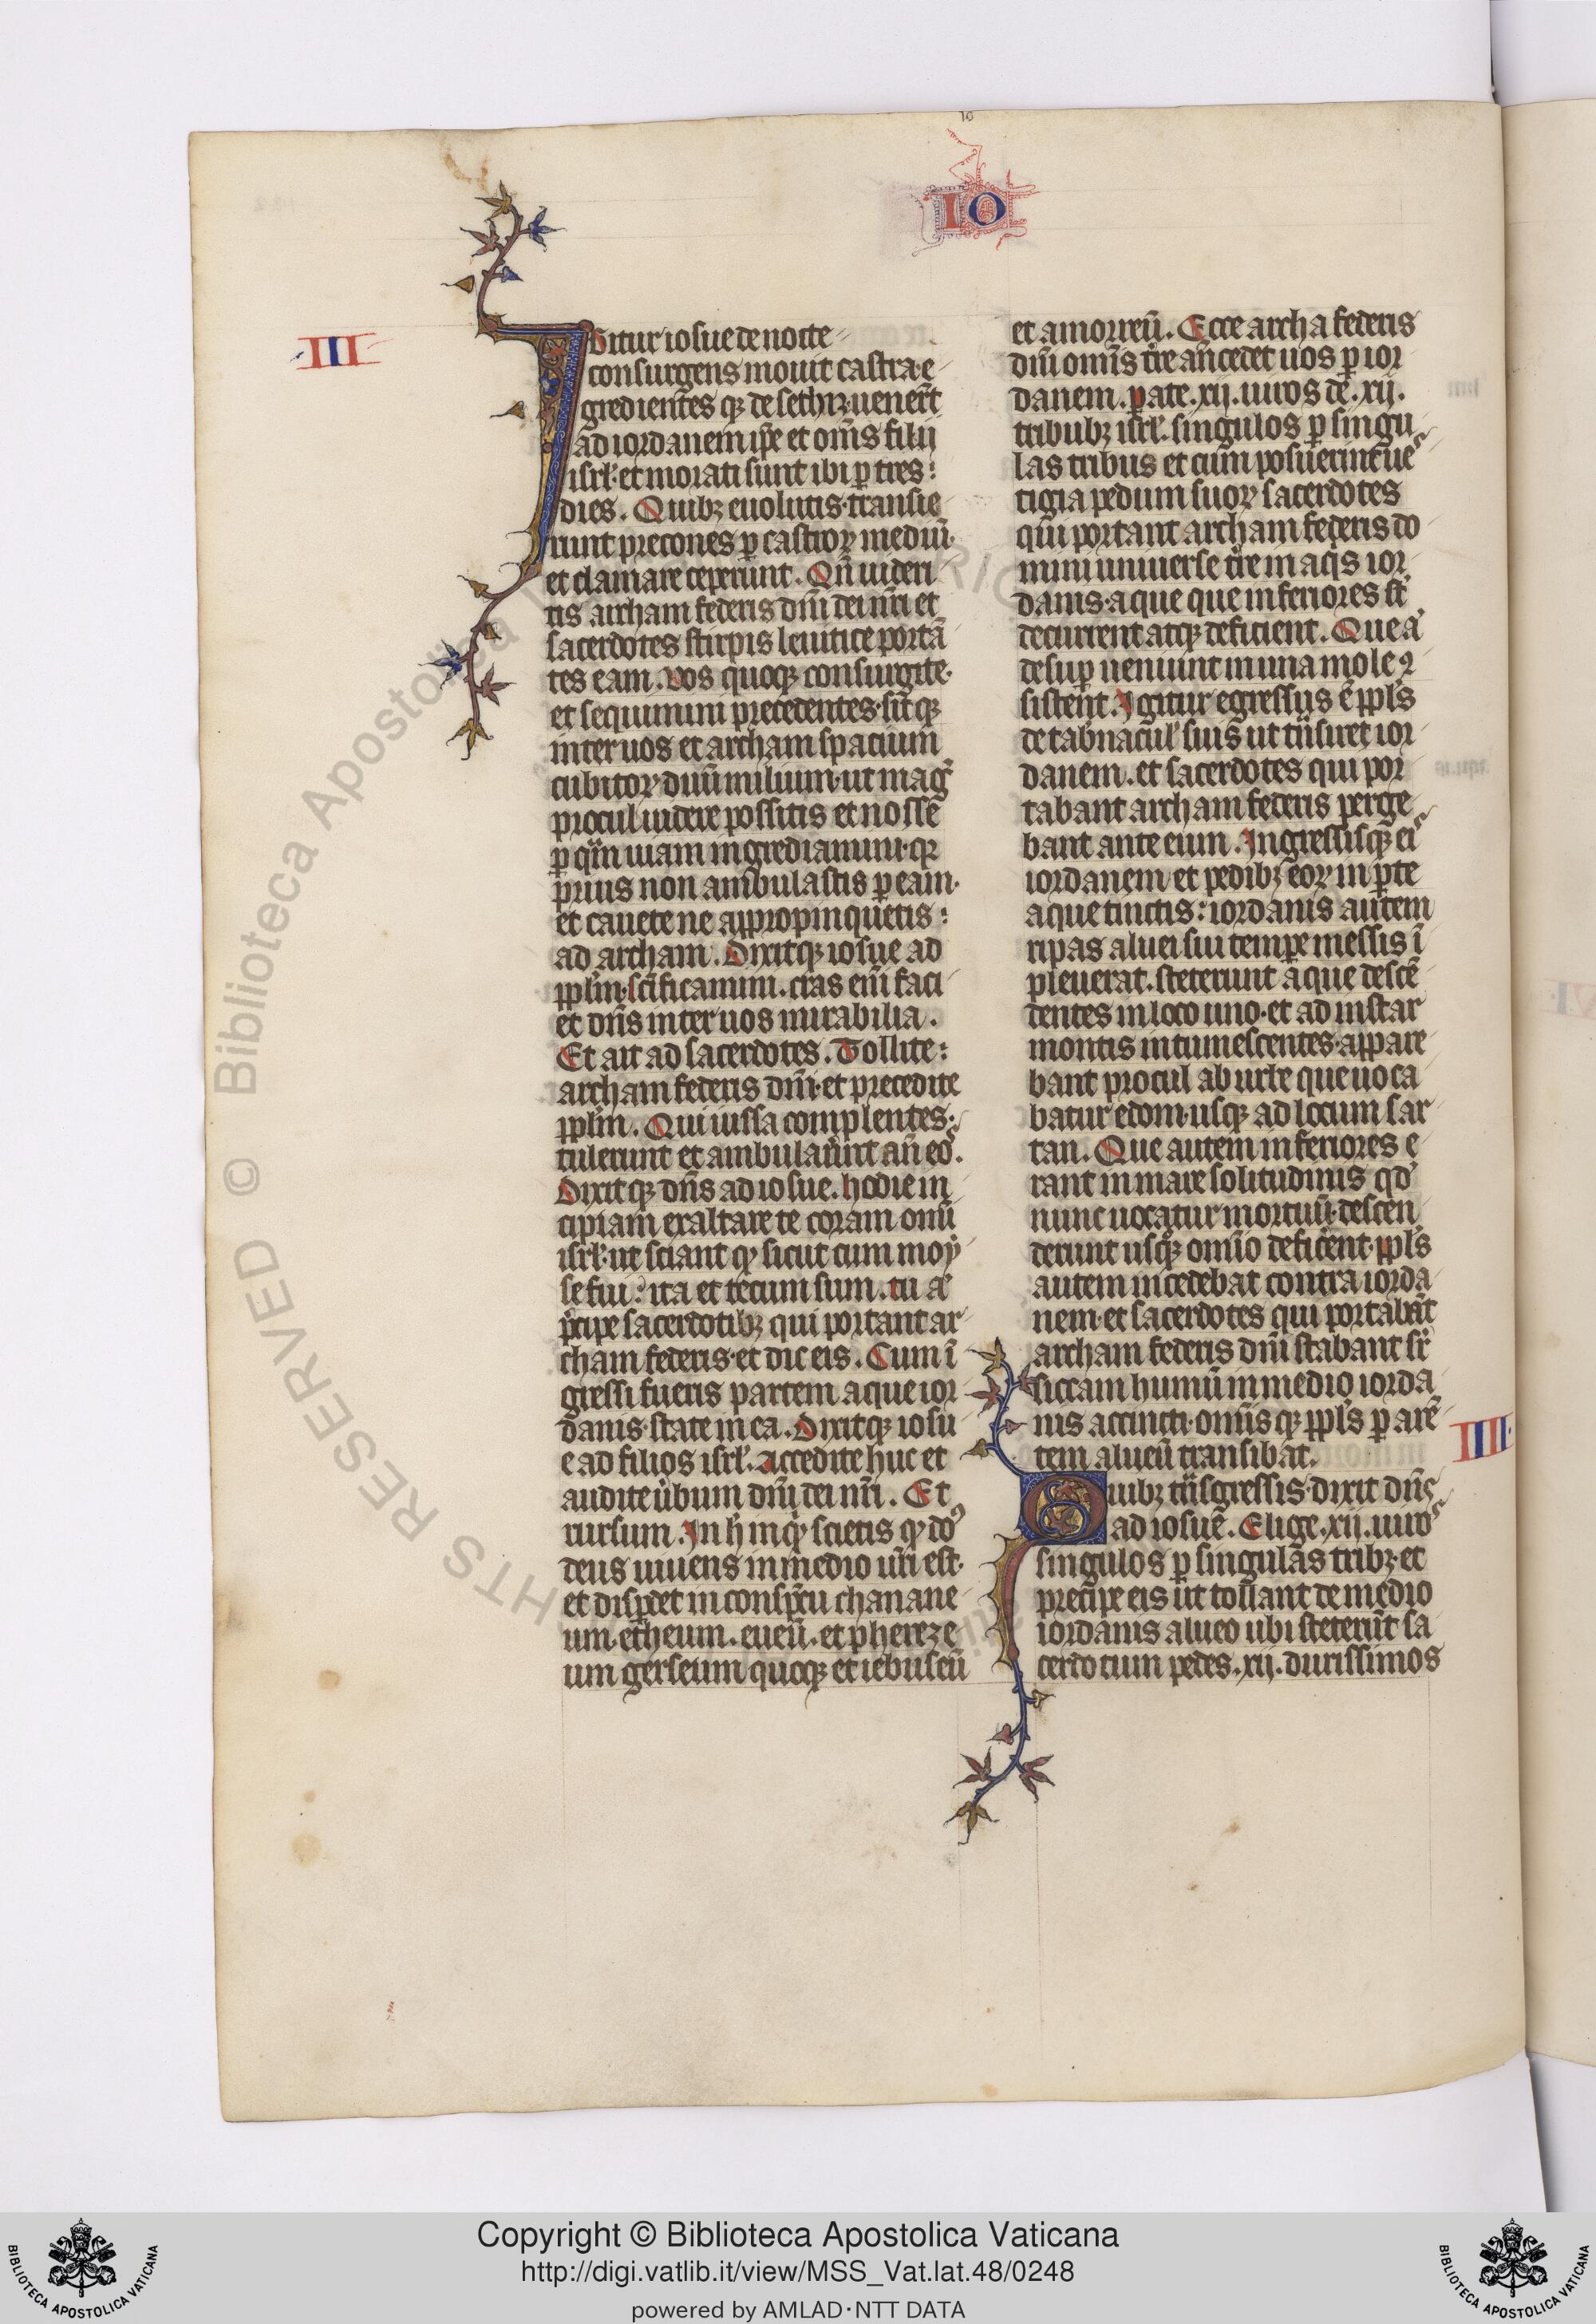 IO
III
Igitur iosue de nocte
consurgens mouit castra· e
gredientes qꝫ de sethim· uenerūt
ad iordanem ip̄e et om̄s filii
isrl̄· et morati sunt ibi ꝑ tres
dies. Quibꝫ euolutis· transie
runt precones ꝑ castroꝝ mediū·
et clamare ceperunt. Qn̄ uideri
tis archam federis dn̄i dei nr̄i et
sacerdotes stirpis leuitice portā
tes eam. Vos quoqꝫ consurgite·
et sequimini precedentes· sitqꝫ
inter uos et archam spacium
cubitoꝝ duū milium· ut magͥ
procul uidere possitis et nosse
ꝑ qͣm uiam ingrediamini· qꝛ
prius non ambulastis ꝑ eam·
et cauete ne appropinquetis
ad archam. Dixitqꝫ iosue ad
ppl̄m· sc̄ificamini. cras eni̅ faci
et dn̄s inter uos mirabilia.
Et ait ad sacerdotes. Tollite
archam federis dn̄i· et precedite
ppl̄m. Qui iussa complentes·
tulerunt et ambulauer̄nt an̄ eos.
Dixitqꝫ dn̄s ad iosue. hodie in
cipiam exaltare te coram omi̅
isrl̄· ut sciant qꝫ sicut cum moy
se fui· ita et tecum sum. tu aū
p̄cipe sacerdotibꝫ qui portant ar
cham federis· et dic eis. Cum ī
gressi fueris partem aque ior
danis· state in ea. Dixitqꝫ iosu
e ad filios isrl̄. Accedite huc et
audite ūbum dn̄i dei nr̄i. Et
rursum. In h̄ inqꝫ scietis qꝫ doꝰ
deus uiuens in medio ur̄i est·
et disp̄det in conspc̄u chanane
um. etheum. eueū. et phereze
um gerseum quoqꝫ et iebuseū
et amorreū. Ecce archa federis
dn̄i omīs tr̄e an̄cedet uos ꝑ ior
danem. ꝑate .xij. uiros de .xij.
tribubꝫ isrl̄. singulos ꝑ singu
las tribus et cum posuerint ues
tigia pedum suoꝝ sacerdotes
qui portant archam federis do
mini uniuerse tr̄e in aqͥs ior
danis· aque que inferiores st̄
decurrent atqꝫ deficient. Que aū
desuꝑ ueniunt in una mole ꝯ
sistent. Igitur egressus ē ppl̄s
de tab̄nacul̄ suis ut tͣnsiret ior
danem. et sacerdotes qui por
tabant archam federis perge
bant ante eum. Ingressisqꝫ eis
iordanem· et pedibꝫ eoꝝ in ꝑte
aque tinctis: iordanis autem
ripas aluei sui tempe messis ī
pleuerat. steterunt aque descē
dentes in loco uno· et ad instar
montis intumescentes· appare
bant procul ab urbe que uoca
batur edom· usqꝫ ad locum sar
tan. Que autem inferiores e
rant in mare solitudinis qd̄
nunc uocatur mortuū· descen
derunt usqꝫ omīo deficerent. ppl̄s
autem incedebat contra iorda
nem· et sacerdotes qui portabāt
archam federis dn̄i stabant sr̄
siccam humū in medio iorda
nis accincti· omīsqꝫ ppl̄s ꝑ arē
tem alueū transibat.
IIII
Quibꝫ tͣnsgressis· dixit dn̄s
ad iosue. Elige .xij. uiros
singulos ꝑ singulas tribꝫ· et
precipe eis ut tollant de medio
iordanis alueo ubi steterūt sa
cerdotum pedes. xij. durissimos
Copyright © Biblioteca Apostolica Vaticana
http://digi.vatlib.it/view/MSS_Vat.lat.48/0248
powered by AMLAD·NTT DATA
BIBLIOTECA APOSTOLICA VATICANA
BIBLIOTECA APOSTOLICA VATICANA